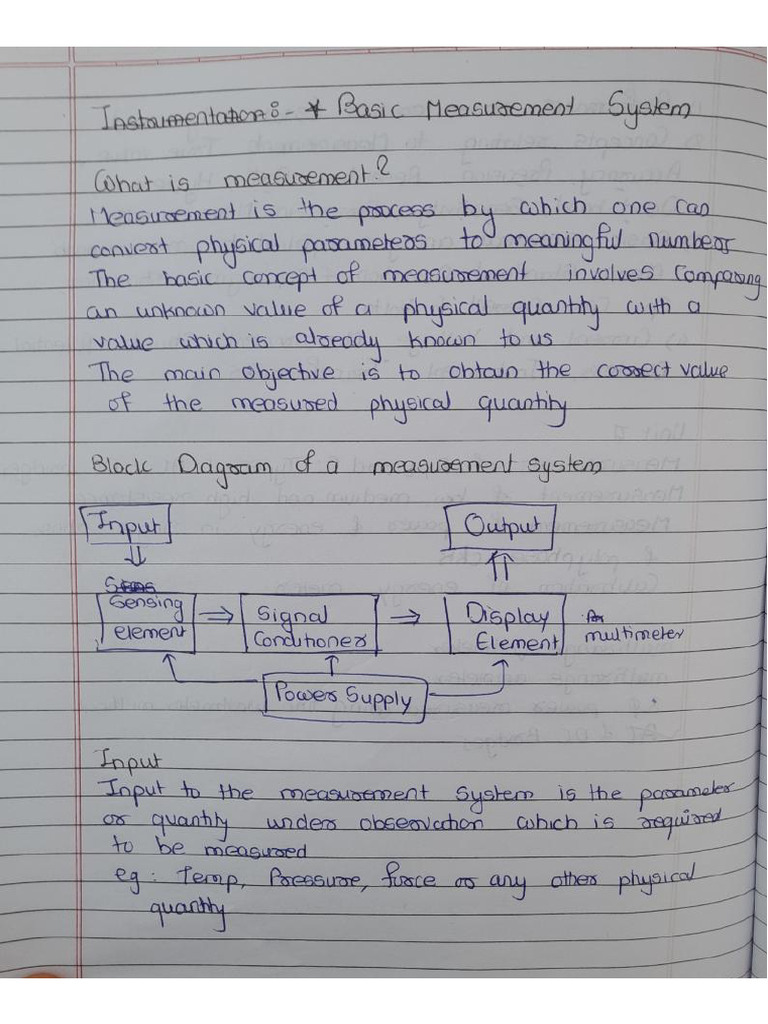 Instrumentation:- * Basic Measurement System
What is measurement?
Measurement is the process by which one can
convert physical parameters to meaningful numbers
The basic concept of measurement involves Comparing
an unknown value of a physical quantity with a
value which is already known to us
The main objective is to obtain the correct value
of the measured physical quantity
Block Diagram of a measurement system
Input
Output
Sensing
element
Signal
Conditioner
Display
Element
multimeter
Power Supply
Input
Input to the measurement system is the parameter
or quantity under observation which is required
to be measured
eg: Temp, Pressure, force or any other physical
quantity